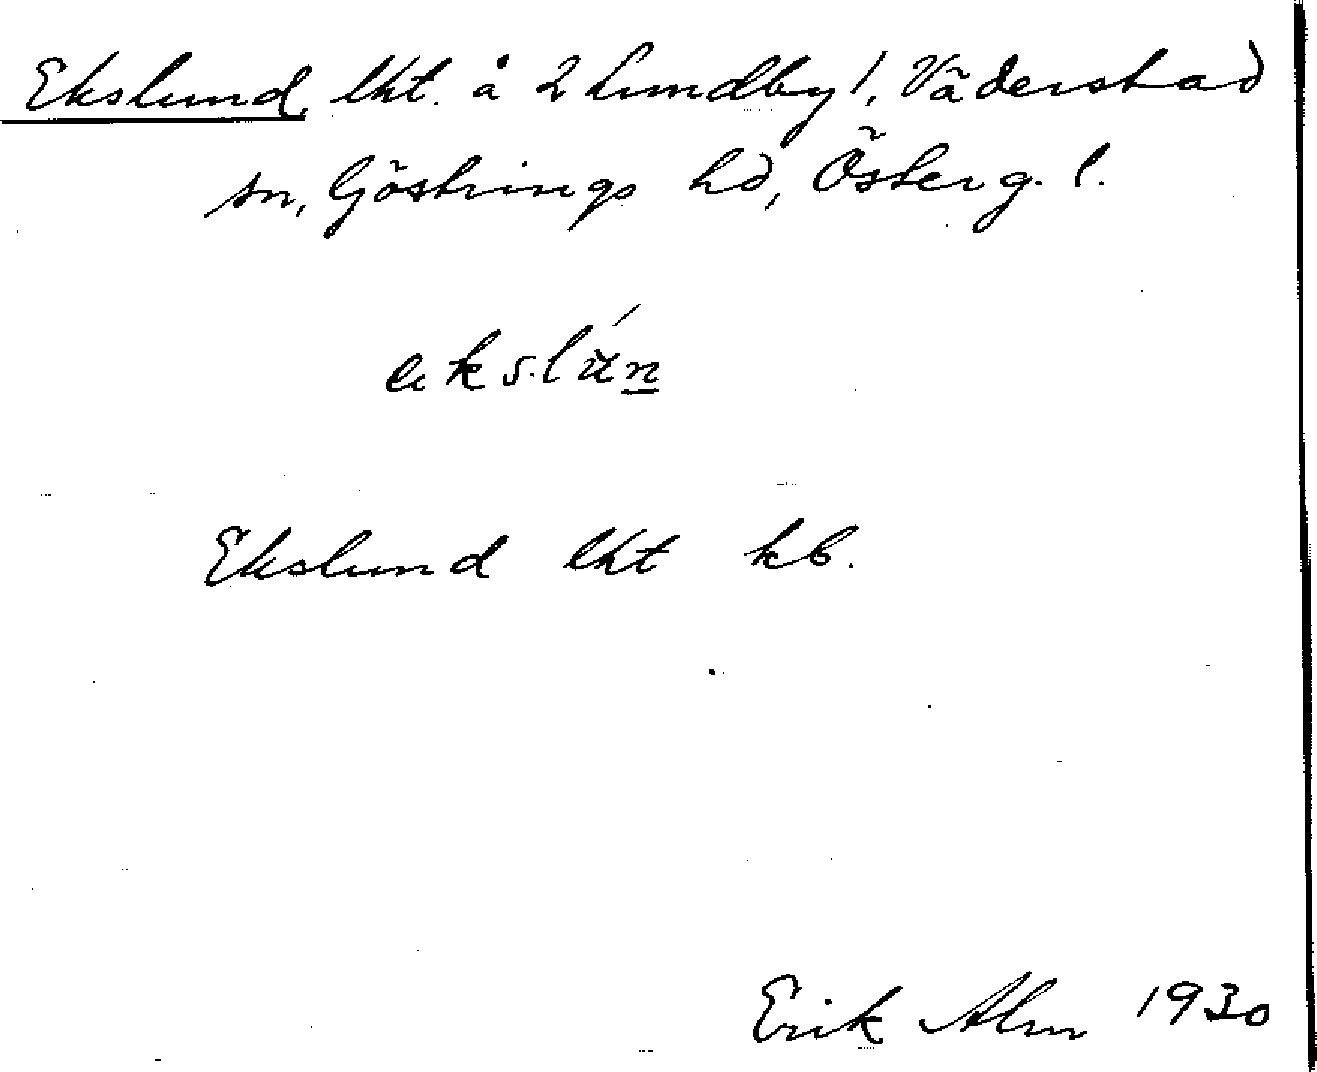 Ekslund, lht. å Lundby 1, Väderstad
sn, Göstrings hd, Österg. l.
Ekslund lht kb.
Erik Alm 1930